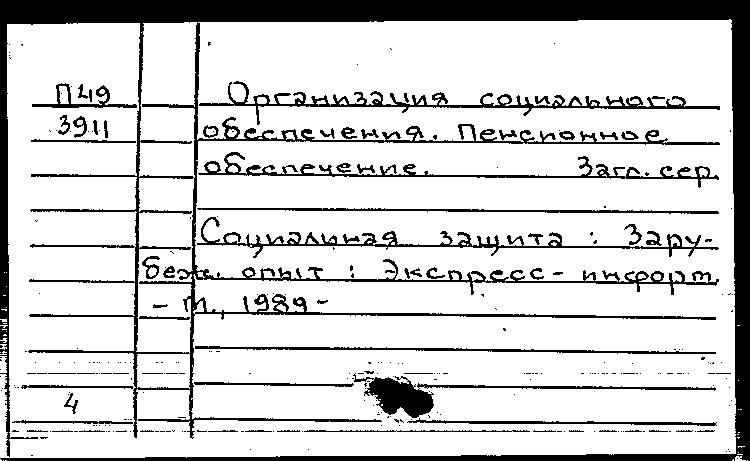 П49 Организация социального
3911 обеспечения. Пенсионное
обеспечение. Загл. сер.
Социальная защита : Зару-
беж. опыт : Экспресс- информ.
- М., 1989-
4